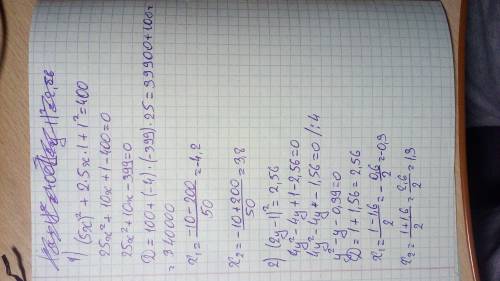 1) (5x)² + 2.5x · 1 + 1² = 400
25x² + 10x + 1 - 400 = 0
25x² + 10x - 399 = 0
D = 100 + (-4) · (-399) · 25 = 39900 + 100 =
= 340000
x₁ = (-10 - 200)/50 = -4,2
x₂ = (-10 + 200)/50 = 3,8
2) (2y - 1)² = 2,56
4y² - 4y + 1 - 2,56 = 0
4y² - 4y - 1,56 = 0 /: 4
y² - y - 0,39 = 0
D = 1 + 1,56 = 2,56
x₁ = (1 - 1,6)/2 = - 0,6/2 = -0,3
x₂ = (1 + 1,6)/2 = 2,6/2 = 1,3